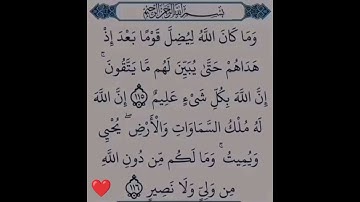 بسم الله الرحمن الرحيم
وَمَا كَانَ اللَّهُ لِيُضِلَّ قَوْمًا بَعْدَ إِذْ
هَدَاهُمْ حَتَّىٰ يُبَيِّنَ لَهُم مَّا يَتَّقُونَ ۚ
إِنَّ اللَّهَ بِكُلِّ شَيْءٍ عَلِيمٌ ﴿١١٥﴾ إِنَّ اللَّهَ
لَهُ مُلْكُ السَّمَاوَاتِ وَالْأَرْضِ ۖ يُحْيِي
وَيُمِيتُ ۚ وَمَا لَكُم مِّن دُونِ اللَّهِ
مِن وَلِيٍّ وَلَا نَصِيرٍ ﴿١١٦﴾